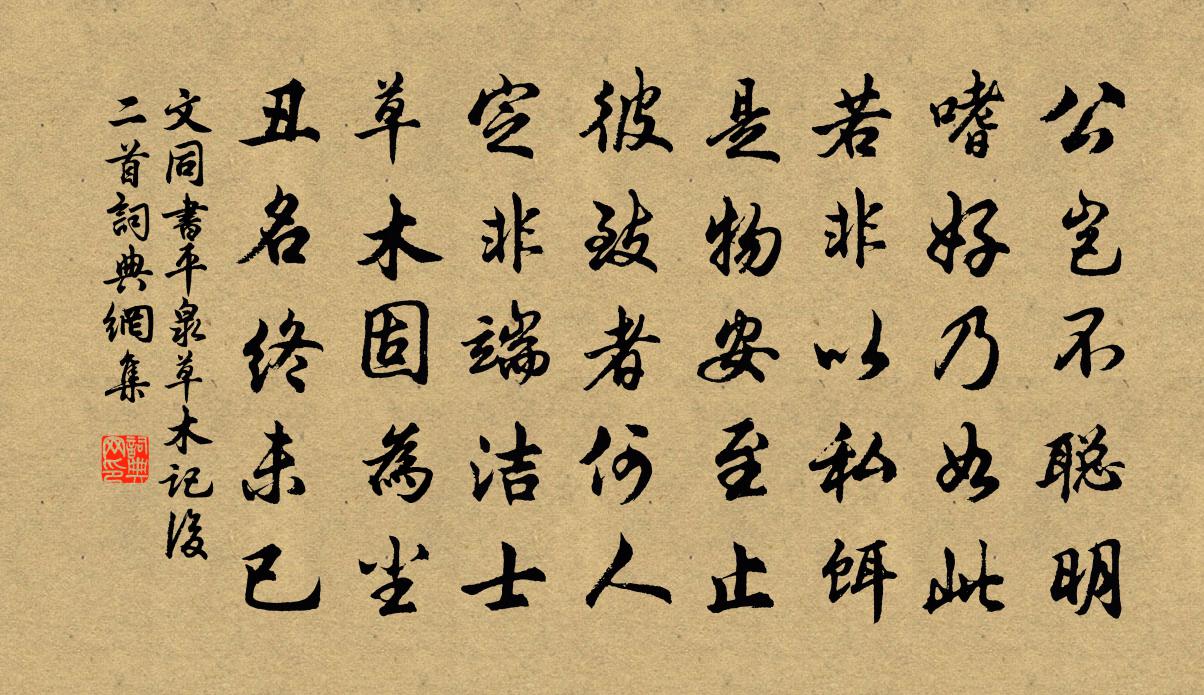 公岂不聪明
嗜好乃如此
若非以私饵
是物安至止
彼致者何人
定非端洁士
草木固为尘
丑名终未已
文同書平泉草木記後
二首詞典網集
詞典
网印